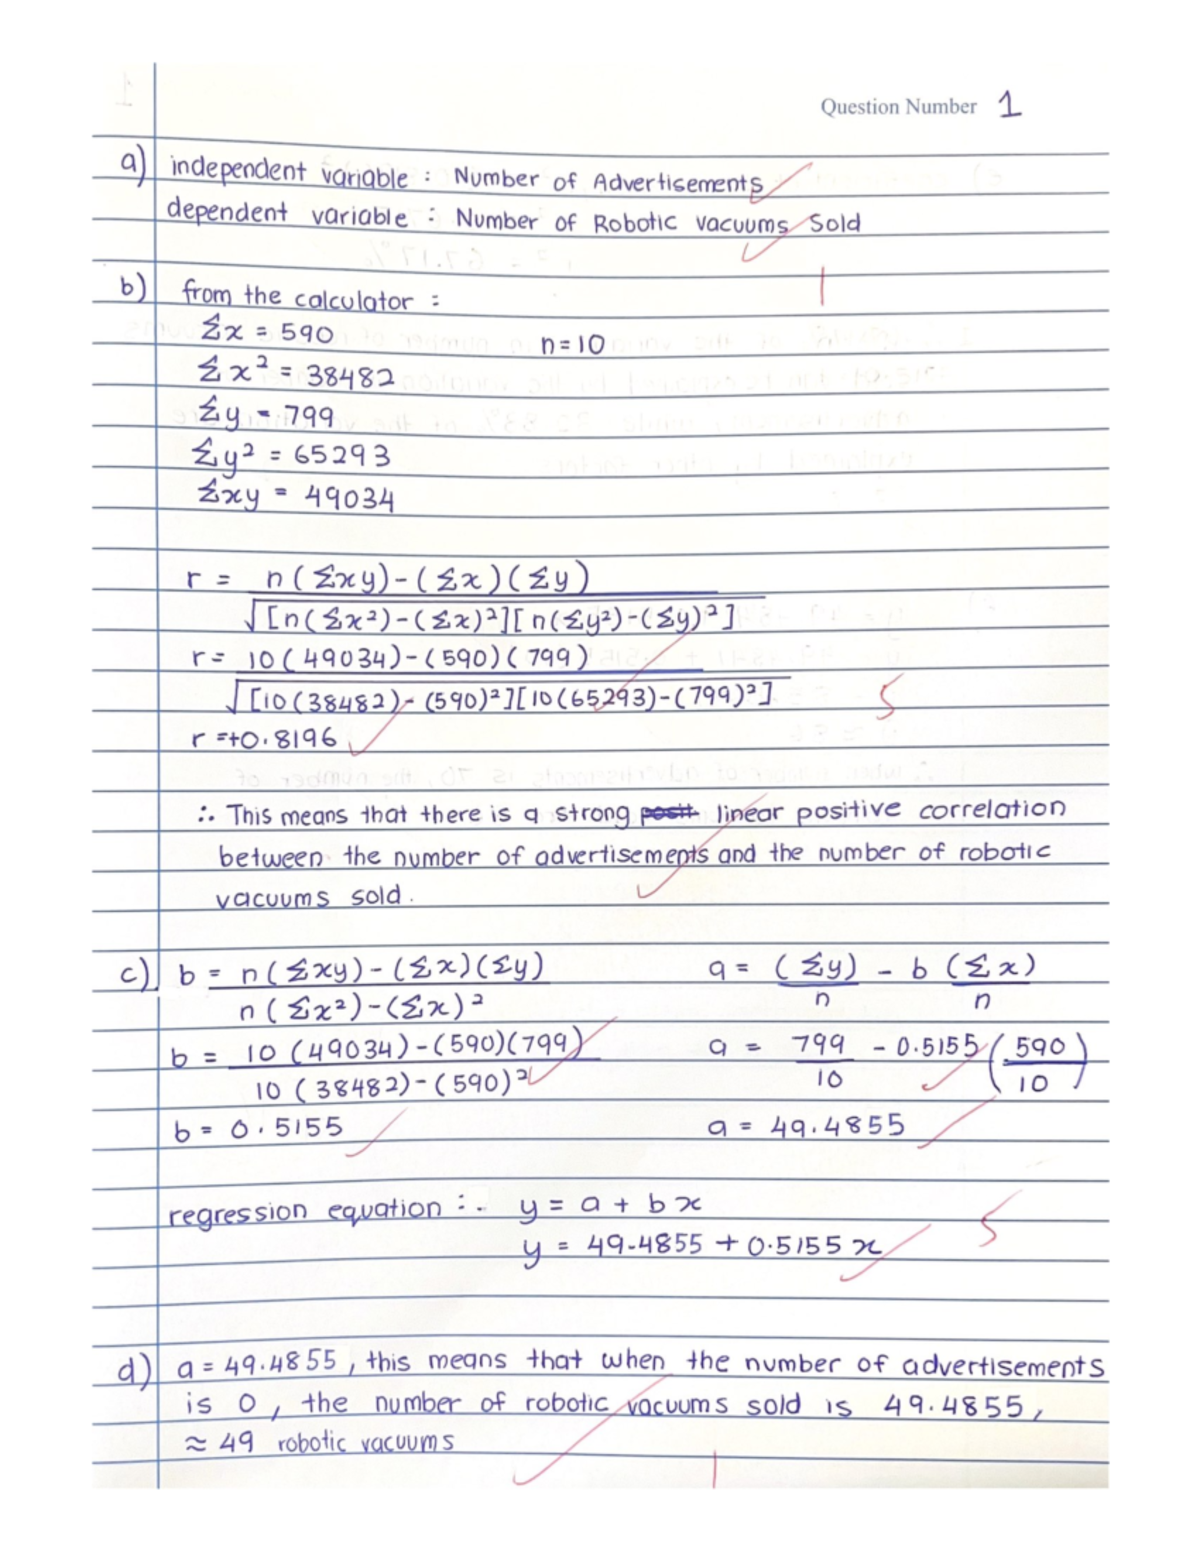 Question Number 1
a) independent variable : Number of Advertisements
dependent variable : Number of Robotic vacuums Sold
1
b) from the calculator :
Σx = 590 n=10
Σx² = 38482
Σy = 799
Σy² = 65293
Σxy = 49034
r = n(Σxy)-(Σx)(Σy)
√[n(Σx²)-(Σx)²][n(Σy²)-(Σy)²]
r = 10(49034)-(590)(799)
√[10(38482)-(590)²][10(65293)-(799)²] 5
r =+0.8196
∴ This means that there is a strong posit linear positive correlation
between the number of advertisements and the number of robotic
vacuums sold.
c) b = n(Σxy)-(Σx)(Σy) a = (Σy) - b (Σx)
n(Σx²)-(Σx)² n n
b = 10 (49034)-(590)(799) a = 799 - 0.5155 (590)
10 (38482)-(590)² 10 10
b = 0.5155 a = 49.4855
regression equation ∴ y = a + bx
5
y = 49.4855 + 0.5155x
d) a = 49.4855, this means that when the number of advertisements
is 0, the number of robotic vacuums sold is 49.4855,
≈ 49 robotic vacuums
1